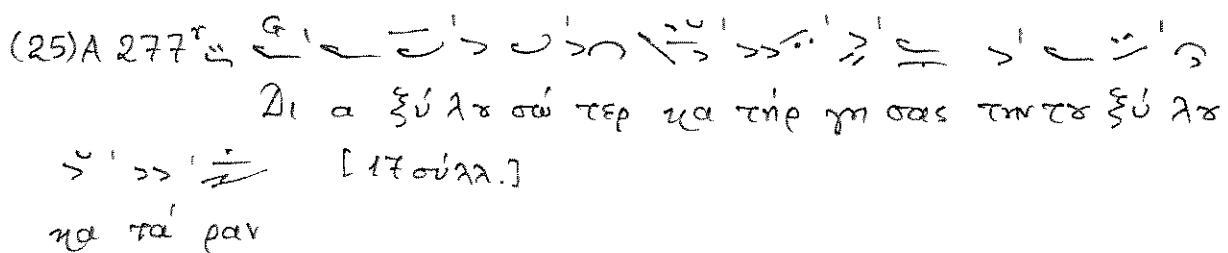 (25) A 277ʳ G
Δι α ξύ λȣ σώ τερ κα τήρ γη σας την τȣ ξύ λȣ
[17 σύλλ.]
κα τά ραν